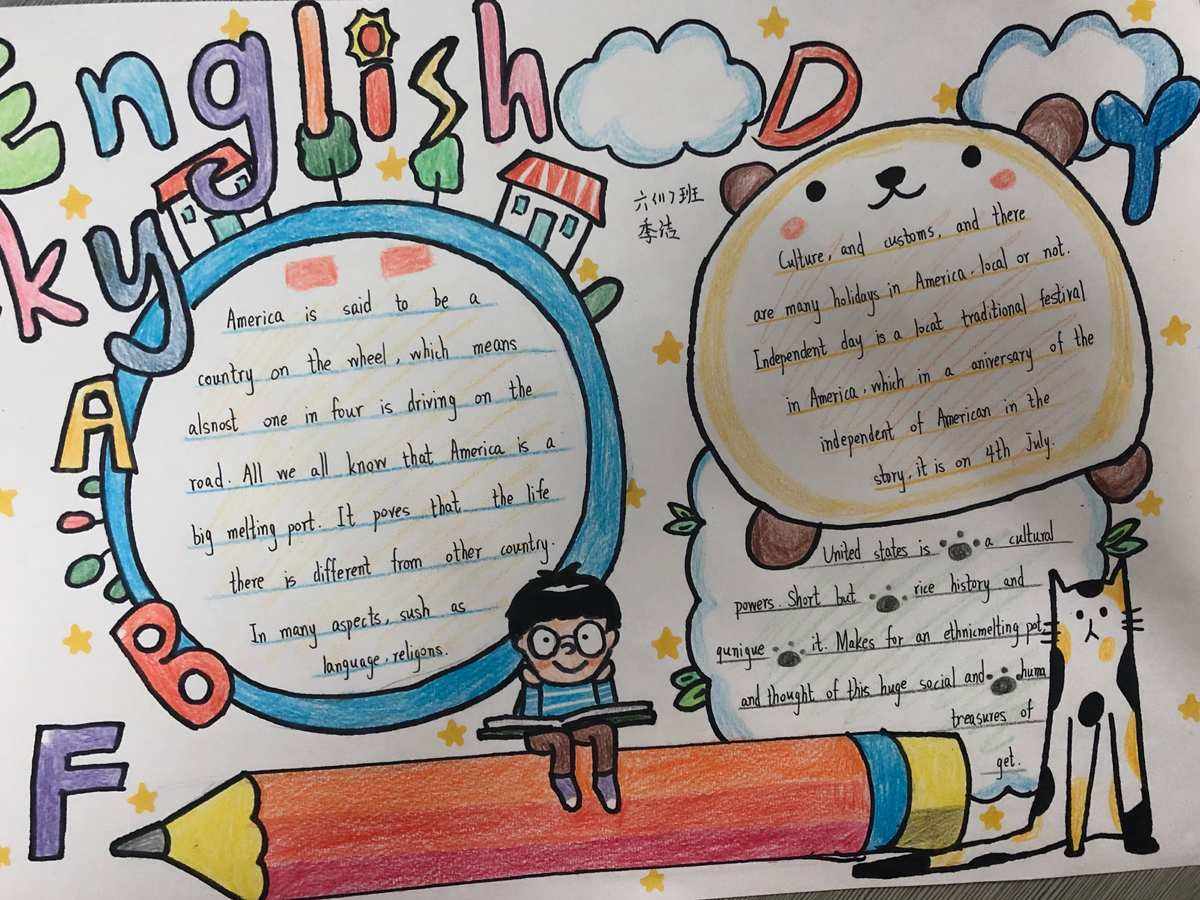 English D Y
ky
A
B
F
六(1)班
季洁
America is said to be a
country on the wheel, which means
alsnost one in four is driving on the
road. All we all know that America is a
big melting port. It poves that the life
there is different from other country.
In many aspects, sush as
language, religons.
Culture, and customs, and there
are many holidays in America, local or not.
Independent day is a locat traditional festival
in America, which in a aniversary of the
independent of American in the
story, it is on 4th July.
United states is a cultural
powers. Short but rice history and
qunigue it. Makes for an ethnicmelting pot,
and thought of this huge social and huma
treasures of
get.